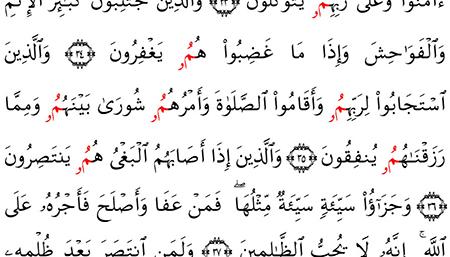 ءَامَنُوا۟ وَعَلَىٰ رَبِّهِمُۥ يَتَوَكَّلُونَ ۝٣٣ وَٱلَّذِينَ يَجْتَنِبُونَ كَبَٰٓئِرَ ٱلْإِثْمِ
وَٱلْفَوَٰحِشَ وَإِذَا مَا غَضِبُوا۟ هُمُۥ يَغْفِرُونَ ۝٣٤ وَٱلَّذِينَ
ٱسْتَجَابُوا۟ لِرَبِّهِمُۥ وَأَقَامُوا۟ ٱلصَّلَوٰةَ وَأَمْرُهُمُۥ شُورَىٰ بَيْنَهُمُۥ وَمِمَّا
رَزَقْنَٰهُمُۥ يُنفِقُونَ ۝٣٥ وَٱلَّذِينَ إِذَا أَصَابَهُمُ ٱلْبَغْيُ هُمُۥ يَنتَصِرُونَ
۝٣٦ وَجَزَٰٓؤُا۟ سَيِّئَةٍ سَيِّئَةٌ مِّثْلُهَا ۖ فَمَنْ عَفَا وَأَصْلَحَ فَأَجْرُهُۥ عَلَى
ٱللَّهِ ۚ إِنَّهُۥ لَا يُحِبُّ ٱلظَّٰلِمِينَ ۝٣٧ وَلَمَنِ ٱنتَصَرَ بَعْدَ ظُلْمِهِۦ